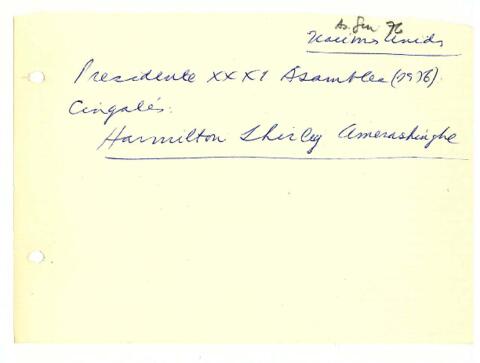 As. Gen 76
Naciones Unidas
Presidente XXXI Asamblea (1976).
Cingalés:
Harmilton Shirley Amerashinghe